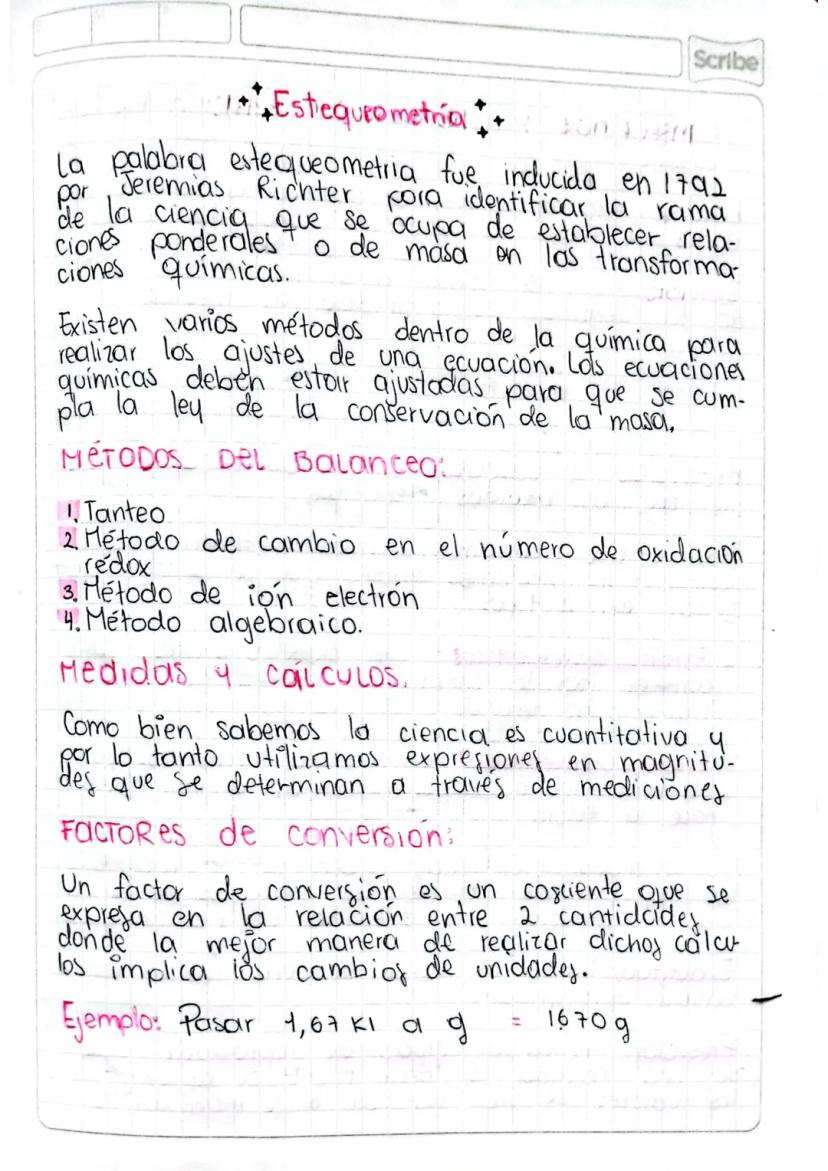 Scribe
Estequeometría
La palabra estequeometria fue inducida en 1792
por Jeremias Richter para identificar la rama
de la ciencia que se ocupa de establecer rela-
ciones ponderales o de masa en las transforma-
ciones químicas.
Existen varios métodos dentro de la química para
realizar los ajustes de una ecuación. Las ecuaciones
químicas deben estar ajustadas para que se cum-
pla la ley de la conservación de la masa.
MÉTODOS DEL Balanceo:
1. Tanteo
2. Método de cambio en el número de oxidación
rédox
3. Método de ión electrón
4. Método algebraico.
Medidas y CálCULOS.
Como bien sabemos la ciencia es cuantitativa y
por lo tanto utilizamos expresiones en magnitu-
des que se determinan a través de mediciones
FACTORES de conversión:
Un factor de conversión es un cosciente que se
expresa en la relación entre 2 cantidades
donde la mejor manera de realizar dichos cálcu
los implica los cambios de unidades.
Ejemplo: Pasar 1,67 Kl a g = 1670g